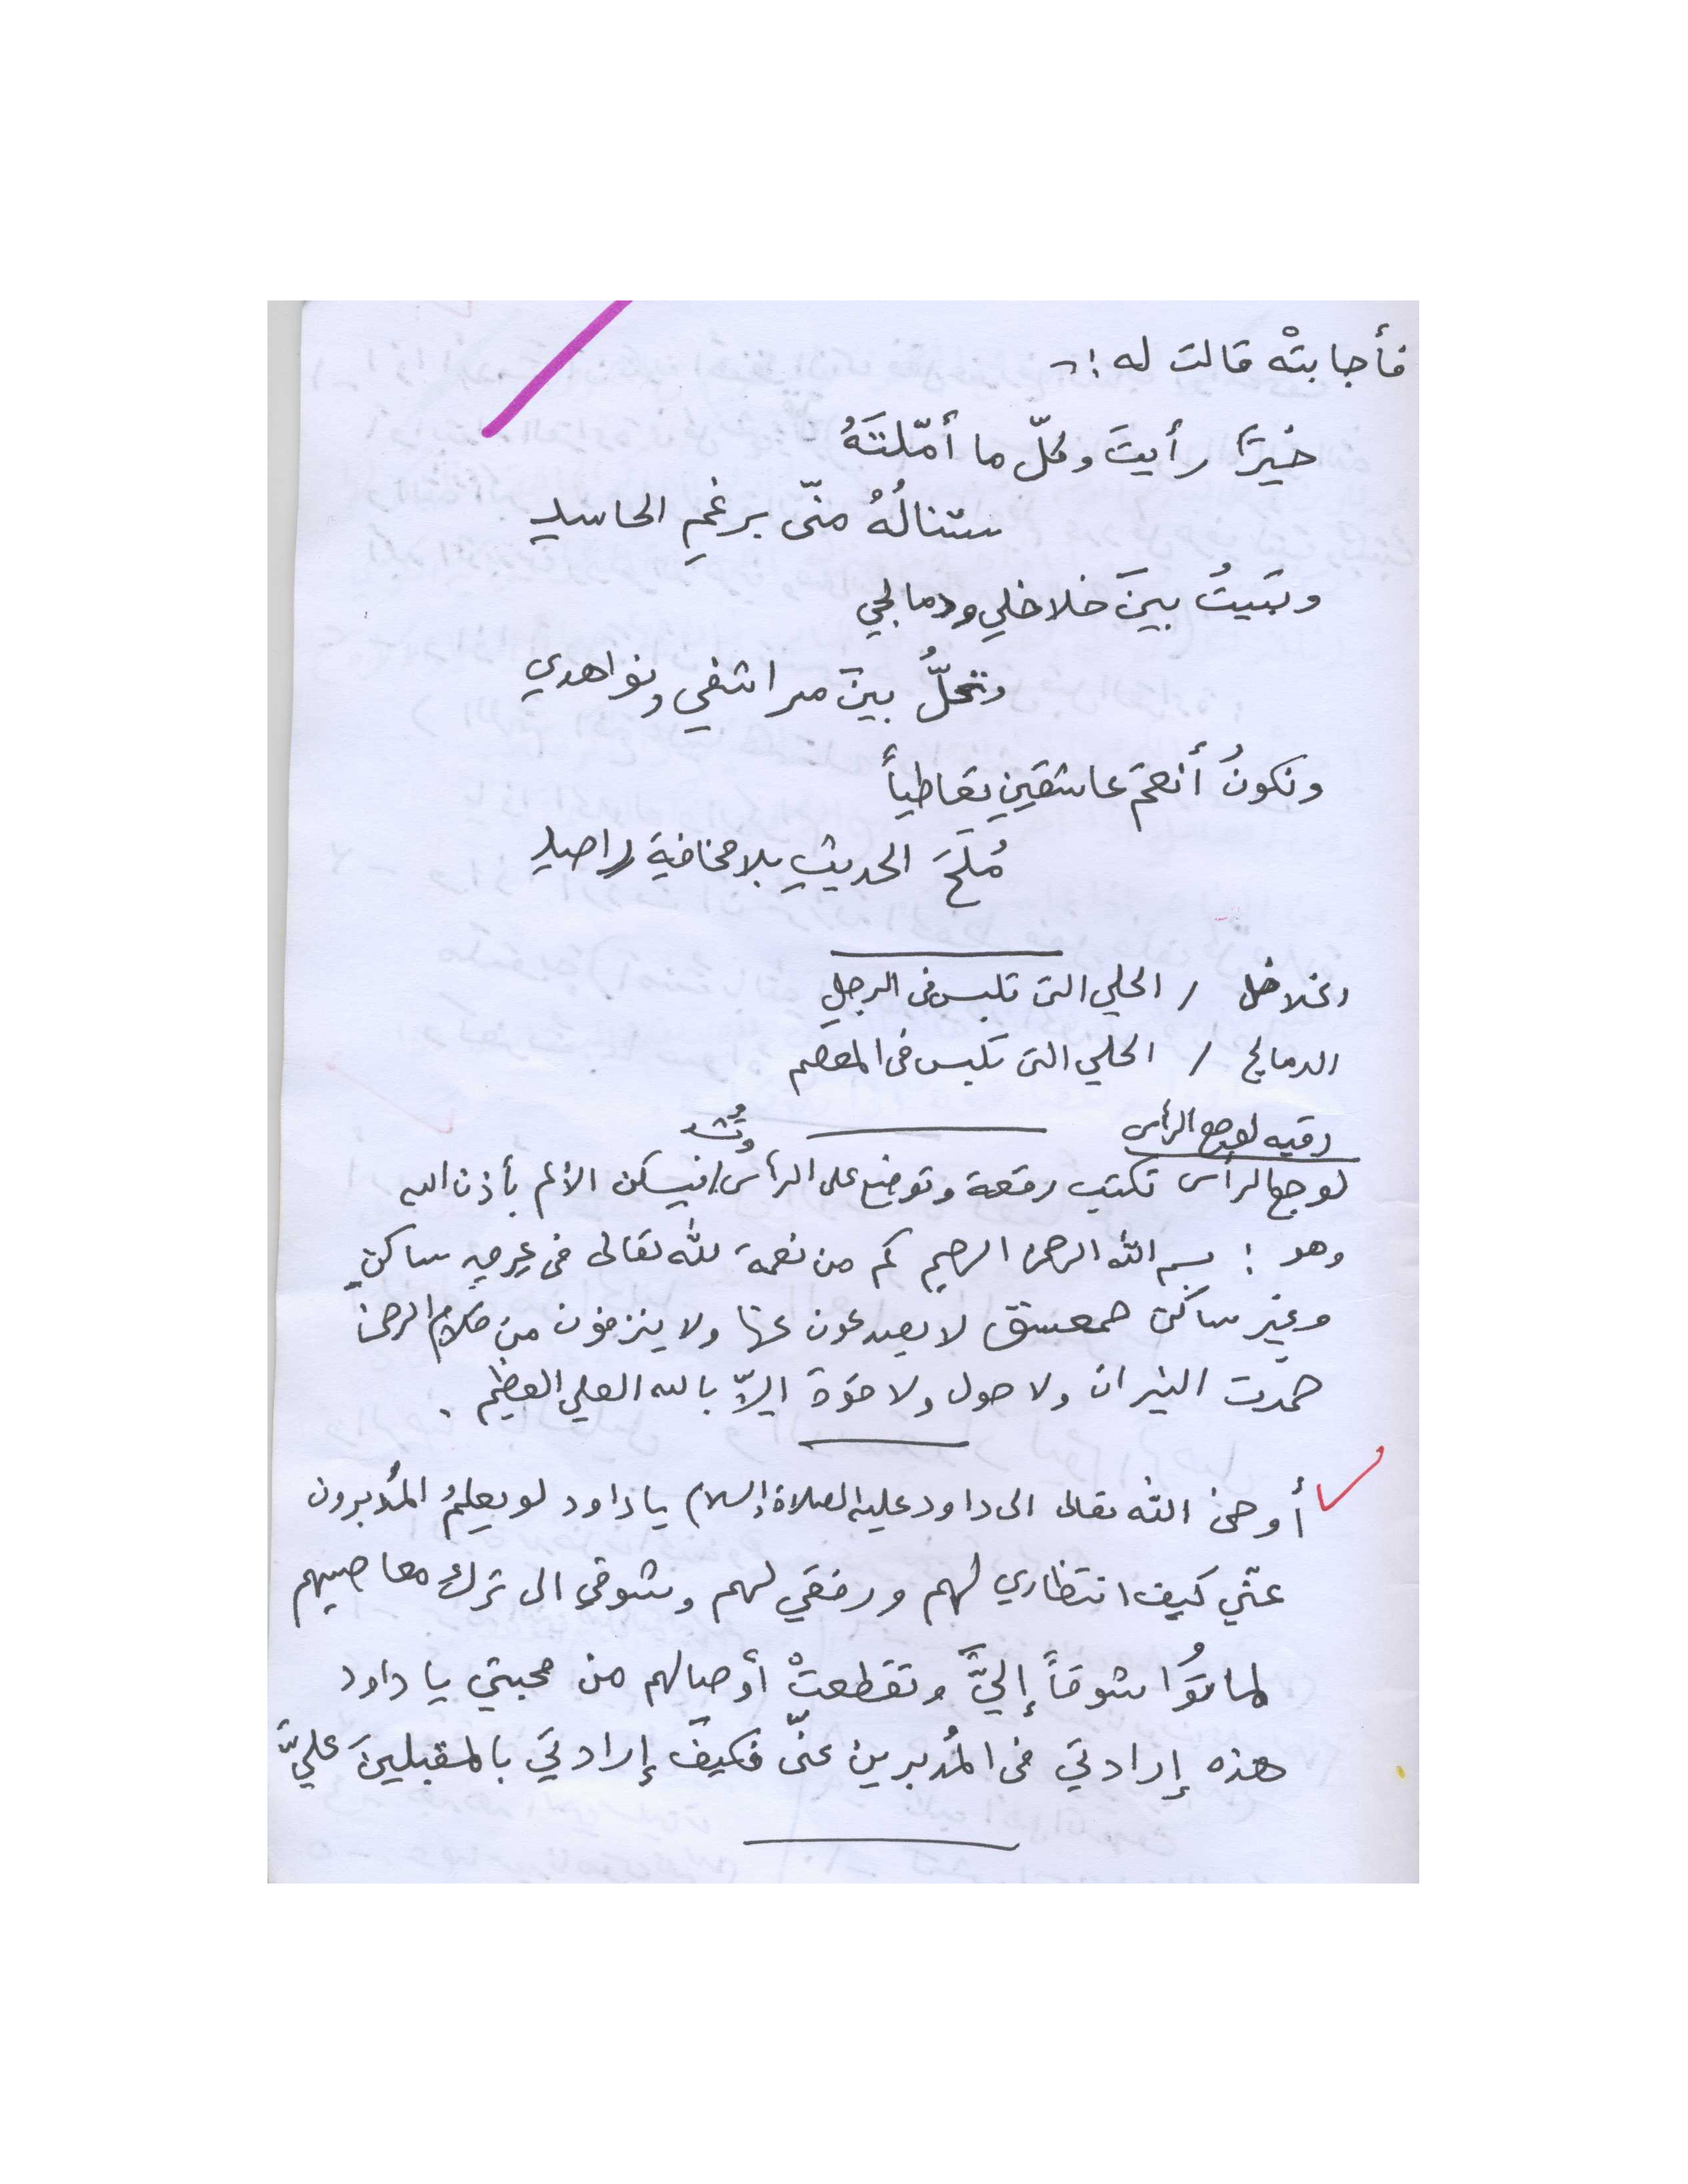 فأجابتْه قالت له :-
خيرًا رأيتَ وكلّ ما أمّلتَهُ
ستنالُهُ منّى برغمِ الحاسدِ
وتبَيتُ بينَ خلاخلي ودمالجي
وتحلُّ بينَ مراشفي ونواهدي
ونكونُ أنعمَ عاشقينِ تعاطياً
مُلَحَ الحديثِ بلا مخافةِ راصدِ
الخلاخل / الحلي التى تلبس فى الرجلِ
الدمالج / الحلي التى تلبس فى المعصم
رقيه لوجع الرأس
لوجع الرأس تكتب رقعة وتوضع على الرأس وتُشد فيسكن الألم بأذن الله
وهو : بسم الله الرحمن الرحيم كم من نعمة لله تعالى فى عِرقٍ ساكنٍ
وغير ساكن حمعسق لا يصدعون عنها ولا ينزفون من كلام الرحمن
خمدت النيران ولا حول ولا قوة إلاّ بالله العلي العظيم .
أوحىَ الله تعالى الى داود عليه الصلاة والسلام يا داود لو يعلمُ المُدبرون
عنّي كيف انتظاري لهم ورفقي لهم وشوقي الى تركِ معاصيهم
لماتوُا شوقاً إليَّ وتقطعتْ أوصالهم من محبتي يا داود
هذه إرادتي فى المُدبرين عنّى فكيفَ إرادتي بالمقبلينَ عليَّ